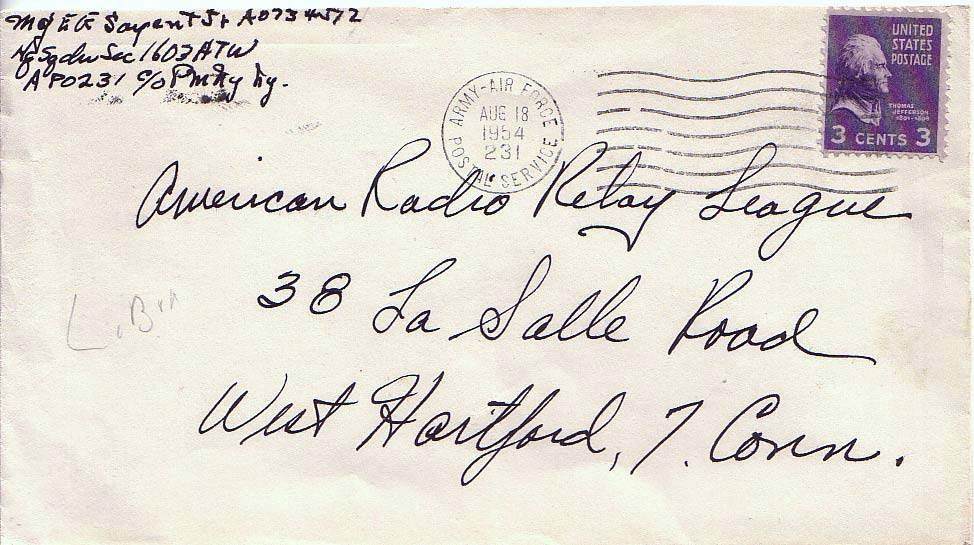 Maj E F Sargent Jr AO734572
Hq Sqdn Sec 1603 ATW
APO 231 c/o PM NY NY.
ARMY-AIR FORCE
AUG 18
1954
231
POSTAL SERVICE
UNITED
STATES
POSTAGE
THOMAS
JEFFERSON
1801-1809
3 CENTS 3
American Radio Relay League
38 La Salle Road
West Hartford, 7. Conn.